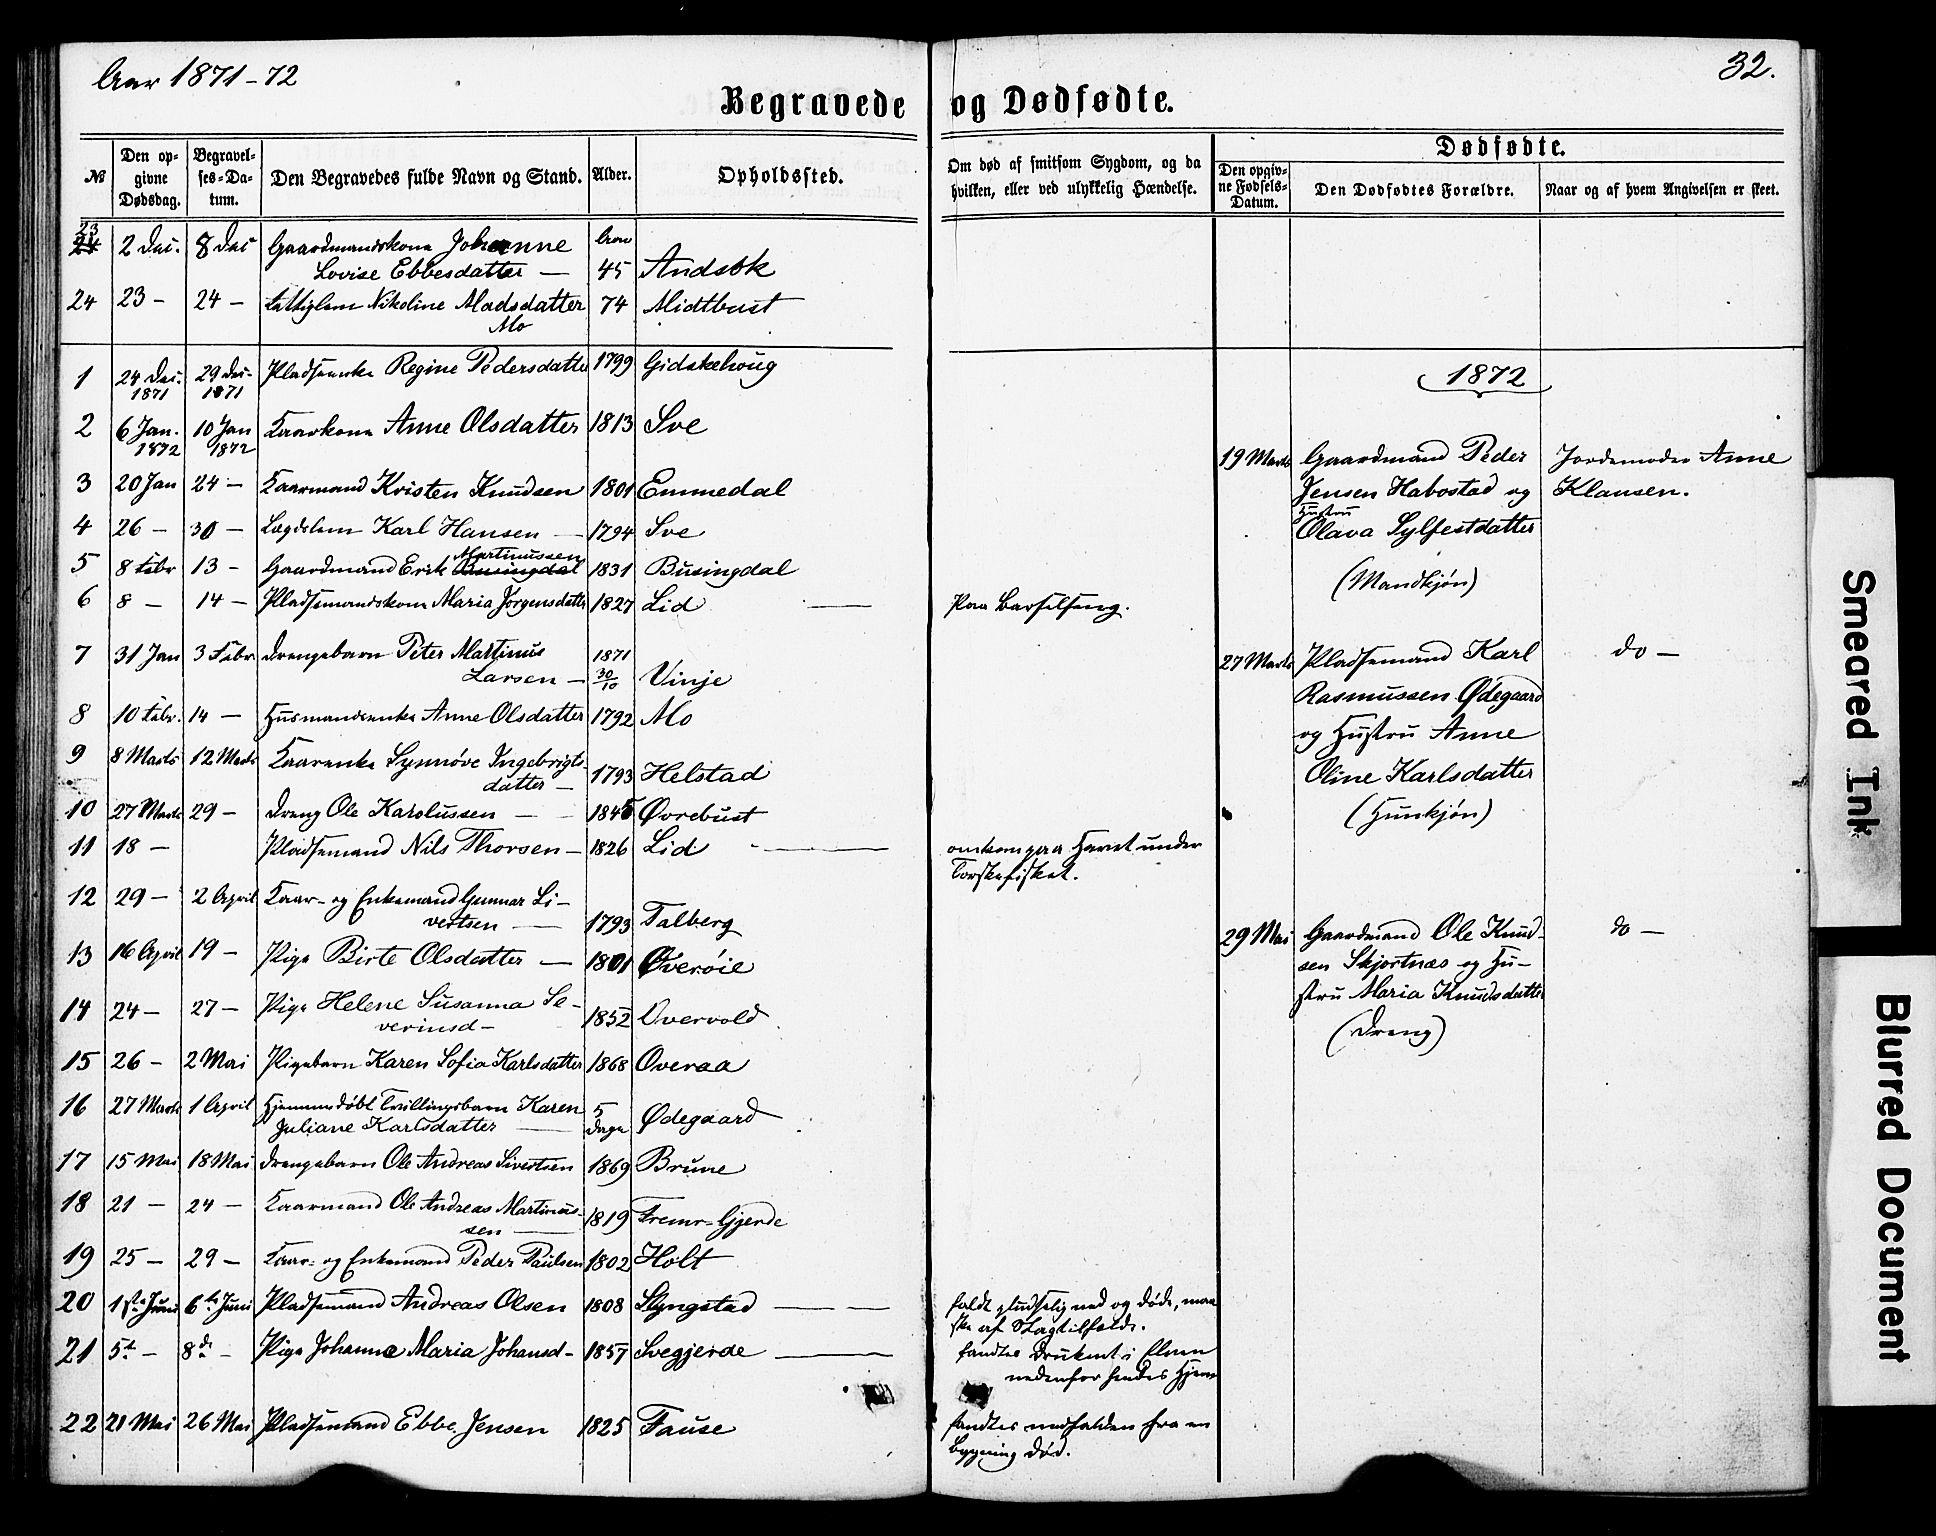 Aar 1871-72
32.
Begravede og Dødfødte.
№
Den opgivne Dødsdag.
Begravelses-Datum.
Den Begravedes fulde Navn og Stand.
Alder.
Opholdssted.
Om død af smitsom Sygdom, og da hvilken, eller ved ulykkelig Hændelse.
Dødfødte.
Den opgivne Fødsels-Datum.
Den Dødfødtes Forældre.
Naar og af hvem Angivelsen er skeet.
23 2 Dec. 8 Dec Gaardmandskone Johanne Aar
Lovise Ebbesdatter — 45 Andestk
24 23 – 24 – Nikoline Madsdatter 74 Midtbust
Mo
1 24 Dec. 1871 29 Dec. 1871 Pladsenke Regine Pedersdatter 1799 Gidskehoug
2 6 Jan. 1872 10 Jan 1872 Kaarkone Anne Olsdatter 1813 Sve
3 20 Jan 24 – Kaarmand Kristen Knudsen 1801 Emmedal
4 26 – 30 – Lægdslem Karl Hansen — 1794 Sve
5 8 Febr 13 – Gaardmand Erik Martinussen Busingdal 1831 Busingdal
6 8 – 14 – Pladsemandskone Maria Jørgensdatter 1827 Lid — Paa Barselseng.
7 31 Jan 3 Febr Drengebarn Peter Martinus 1871
Larsen – 30/10 Vinje
8 10 Febr. 14 – Husmandsenke Anne Olsdatter 1792 Mo
9 8 Marts 12 Marts Kaarenke Synnøve Ingebrigts-
datter – 1793 Helstad
10 27 Marts 29 – Dreng Ole Karolussen — 1845 Øvrebust
11 18 – Pladsemand Nils Thorsen – 1826 Lid — omkom paa Havet under
Torskefisket.
12 29 – 2 April Kaar- og Enkemand Gunnar Si-
vertsen — 1793 Talberg
13 16 April 19 – Pige Birte Olsdatter — 1801 Øverøie
14 24 – 27 – Pige Helene Susanna Se-
verinsd – 1852 Overvold
15 26 – 2 Mai Pigebarn Karen Sofia Karlsdatter 1868 Overaa
16 27 Marts 1 April Hjemmedøbt Tvillingbarn Karen 5
Juliane Karlsdatter — Dage Ødegaard
17 15 Mai 18 Mai Drengebarn Ole Andreas Sivertsen 1869 Brune
18 21 – 24 – Kaarmand Ole Andreas Martinus-
sen — 1819 Fremr-Gjerde
19 25 – 29 – Kaar- og Enkemand Peder Paulsen 1802 Holt
20 1ste Juni 6te Juni Pladsemand Andreas Olsen 1808 Slyngstad — faldt pludselig ned og døde, maa
ske af Slagtilfælde.
21 5te – 8de – Pige Johanne Maria Johansd – 1857 Svegjerde — fandtes druknet i Elven
nedenfor hendes Hjem
22 21 Mai 26 Mai Pladsemand Ebbe Jensen 1825 Fause fandtes nedfalden fra en
Bygning død.
1872
19 Marts Gaardmand Peder Jordemoder Anne
Jensen Habostad og Klausen.
Hustru
Olava Sylfestdatter
(Mandkjøn)
27 Marts Pladsemand Karl do –
Rasmussen Ødegaard
og Hustru Anne
Oline Karlsdatter
(Hunkjøn)
29 Mai Gaardmand Ole Knud- do –
sen Skjortnæs og Hu-
stru Maria Knudsdatter
(Dreng)
Smeared Ink
Blurred Document